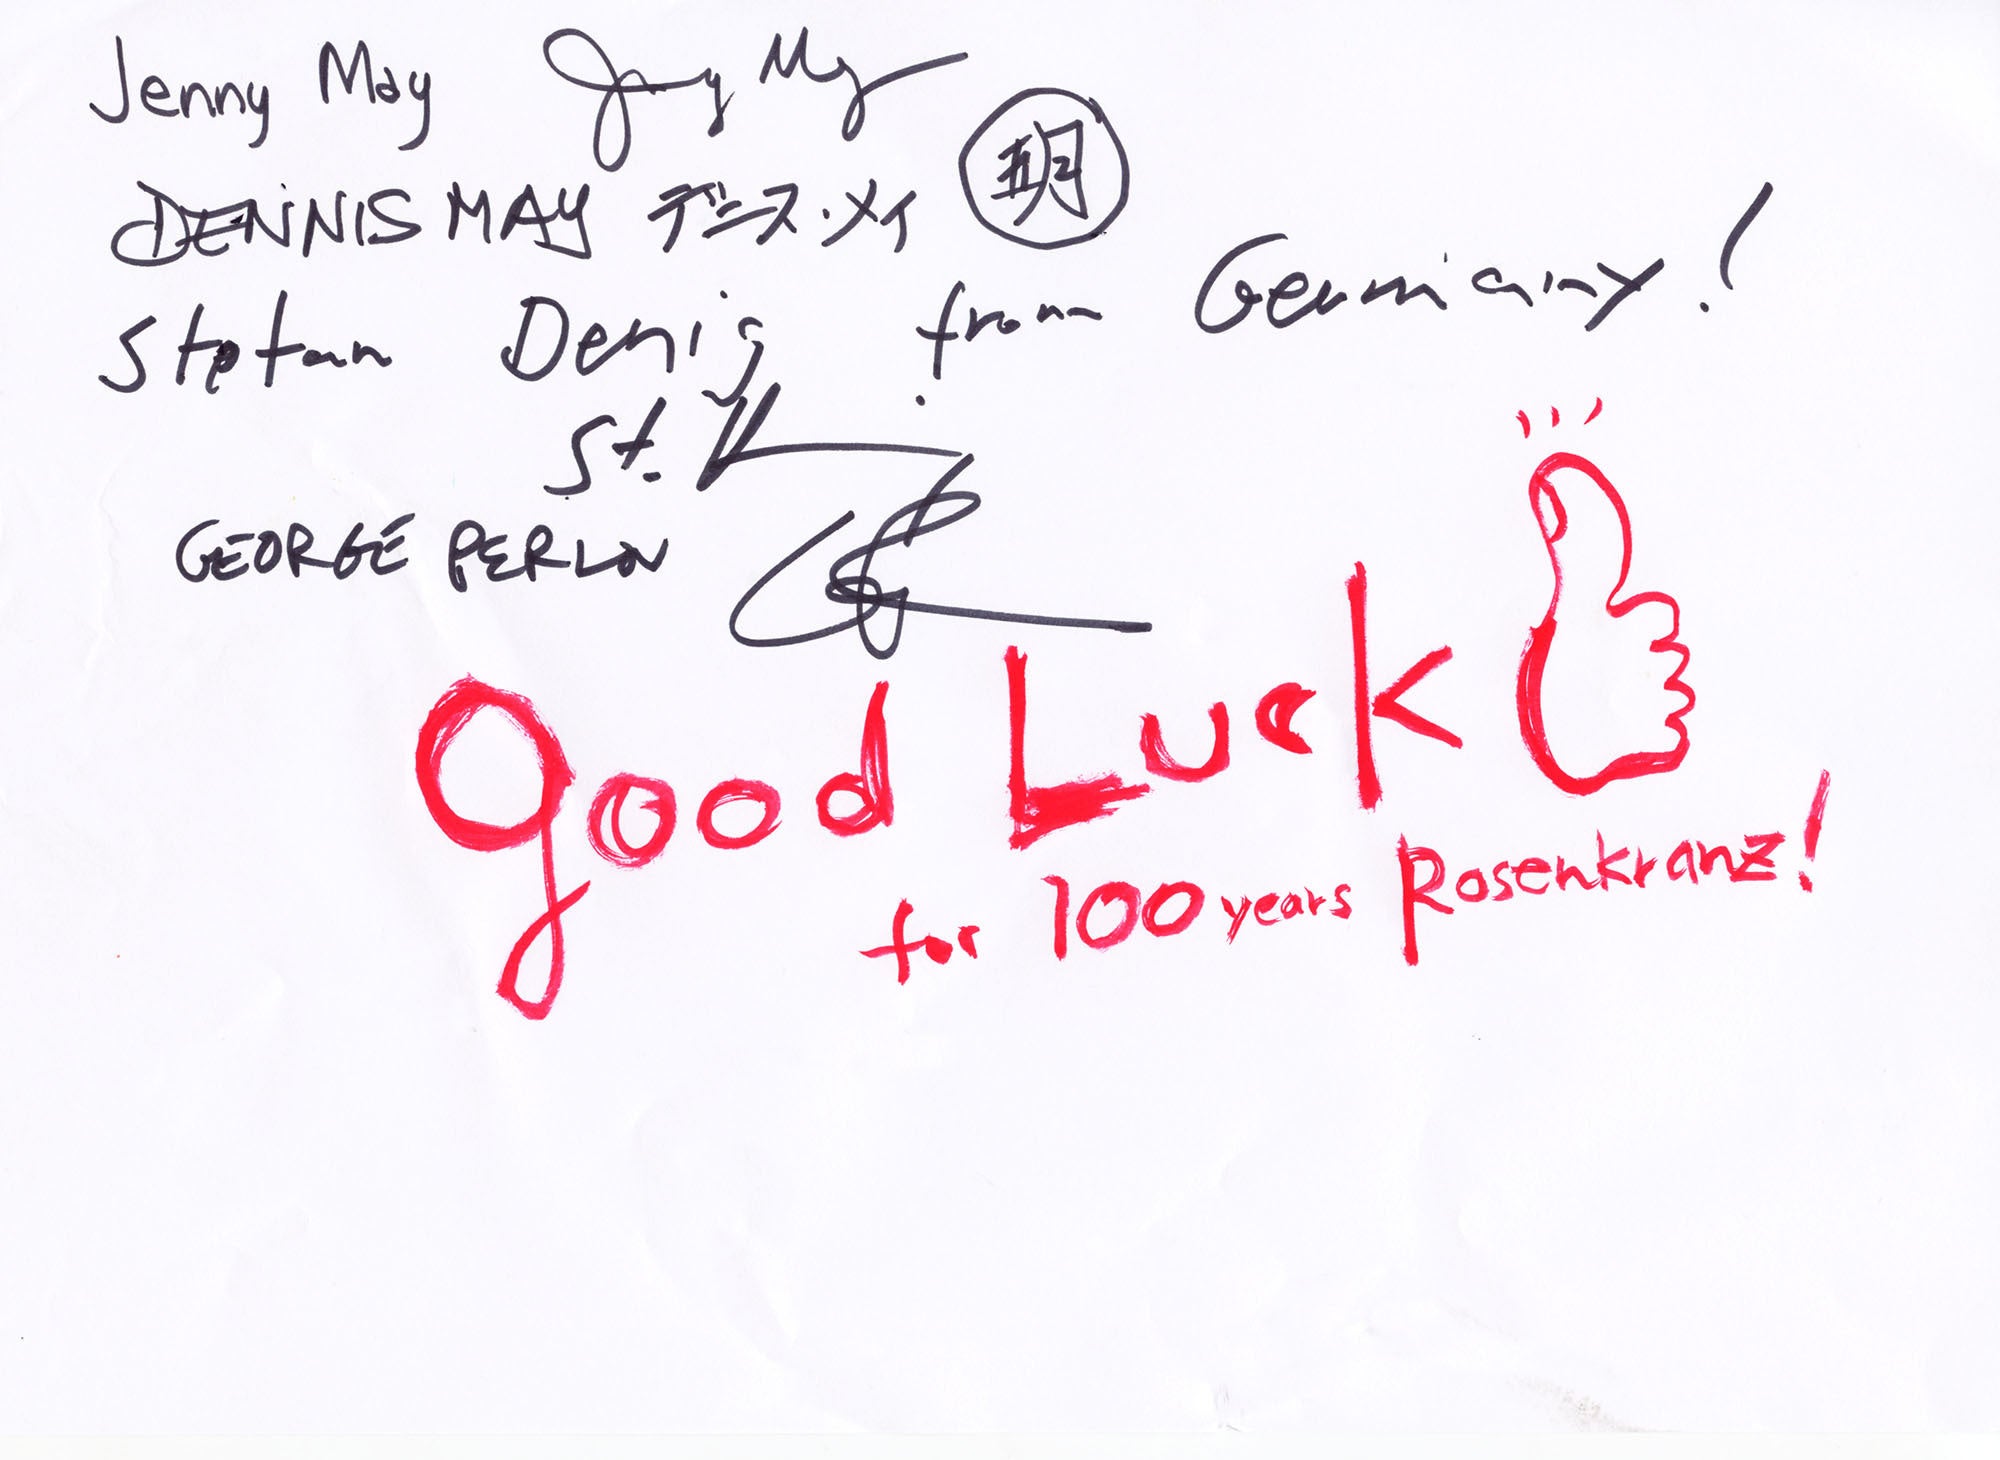 Jenny May
DENNIS MAY デニス・メイ 五月
Stefan Denig from Germany!
St.
GEORGE PERLOV
Good Luck
for 100 years Rosenkranz!